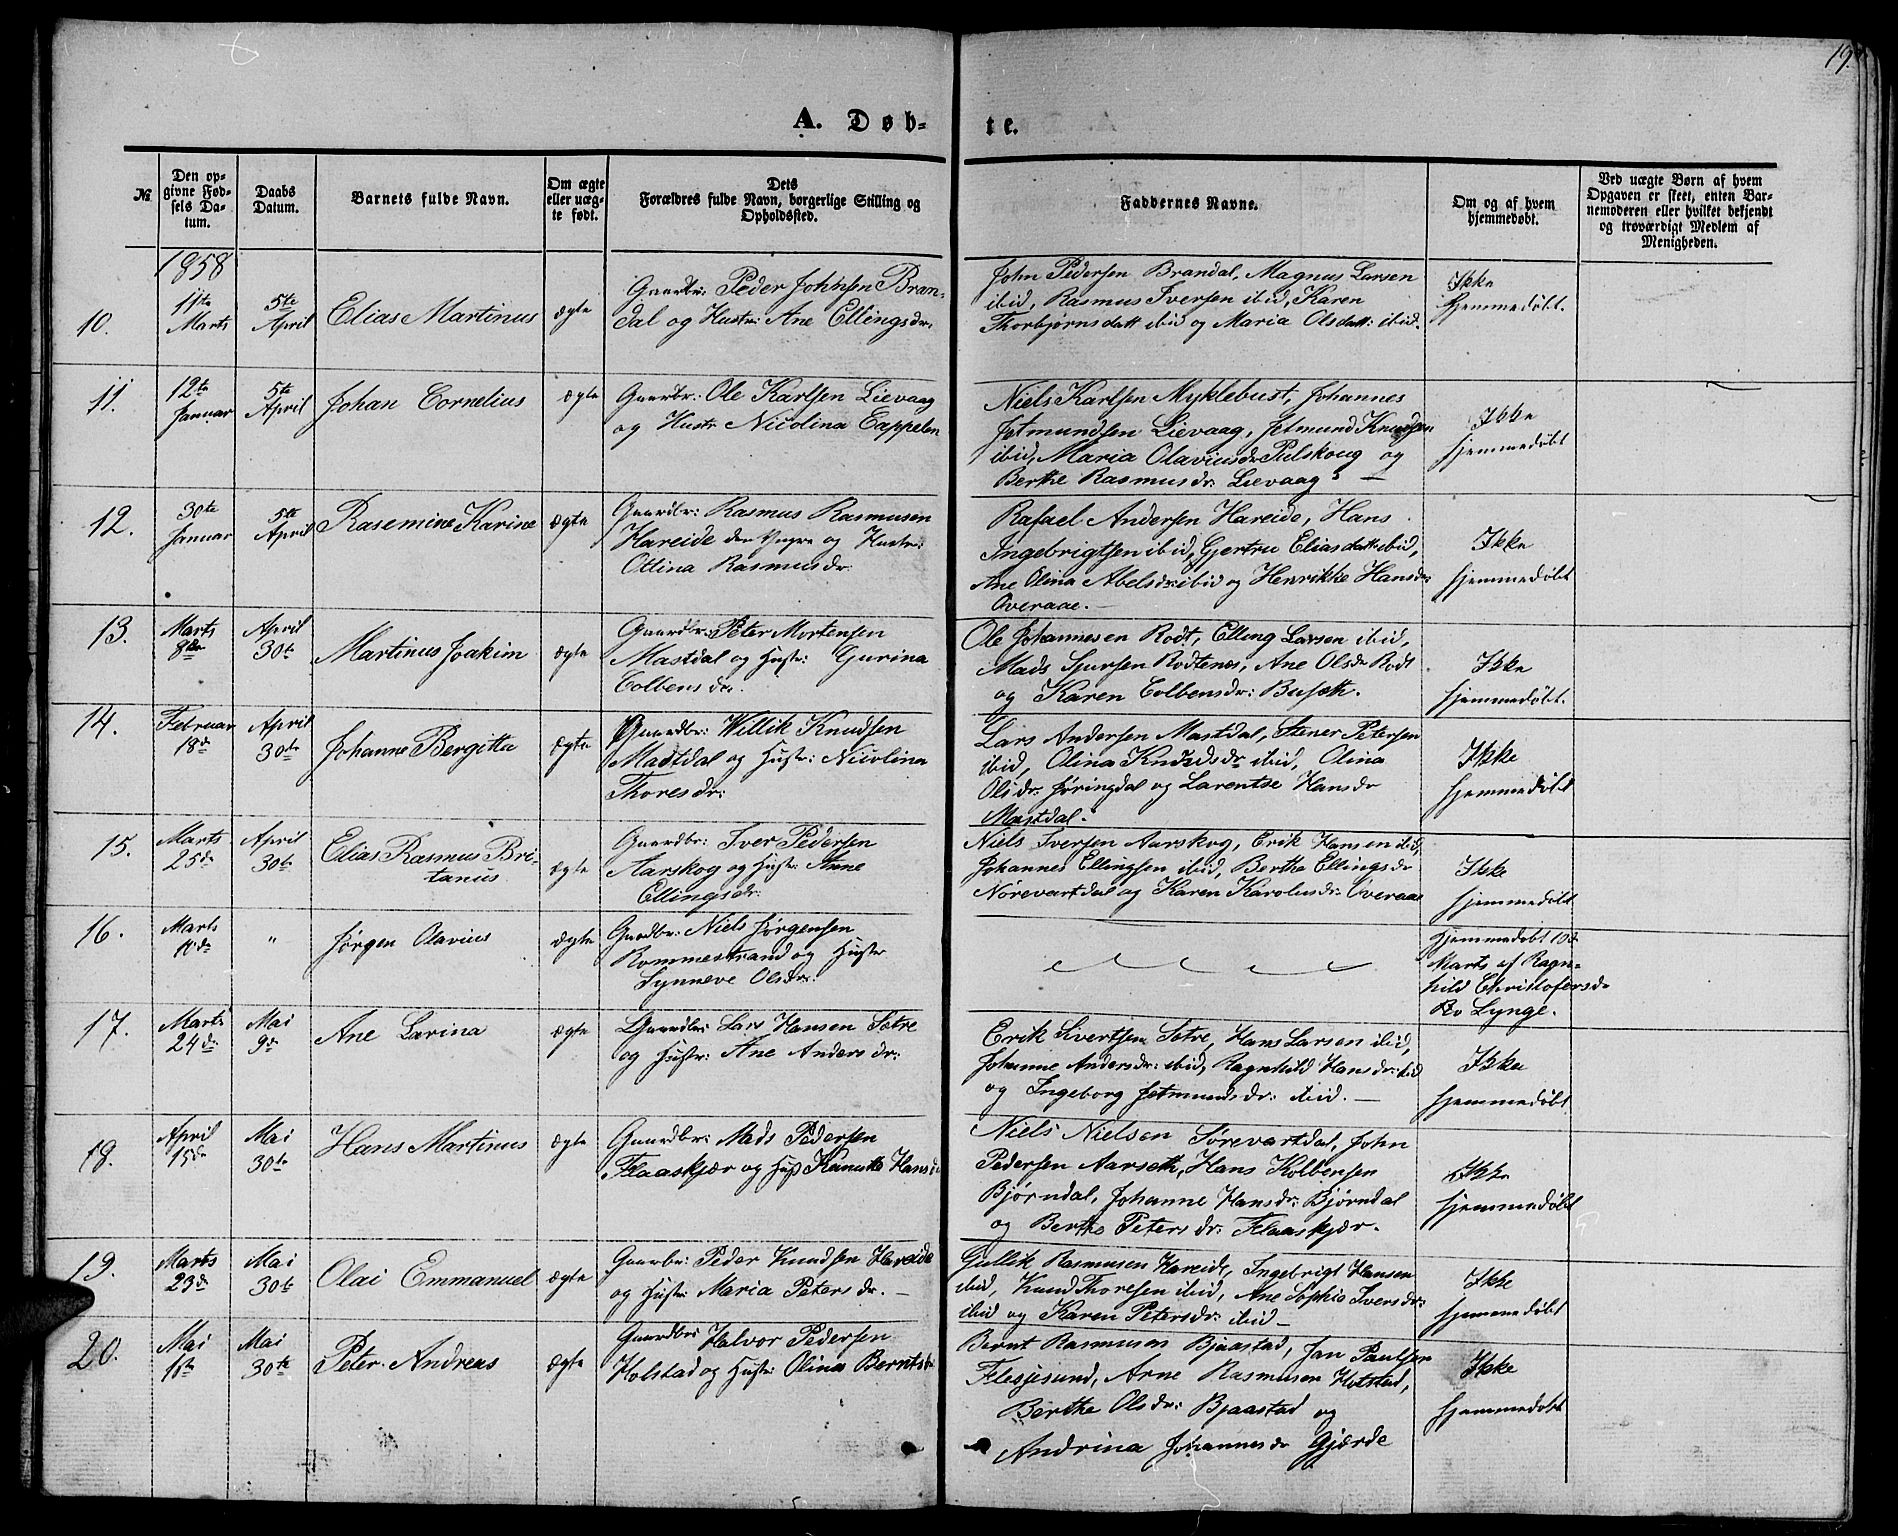 19.
A. Døb-
te.
№
Den op-
givne Fød-
sels Da-
tum.
Daabs
Datum.
Barnets fulde Navn.
Om ægte
eller uæg-
te født.
Dets
Forældres fulde Navn, borgerlige Stilling og
Opholdssted.
Faddernes Navne.
Om og af hvem
hjemmedøbt.
Ved uægte Børn af hvem
Opgaven er skeet, enten Bar-
nemoderen eller hvilket bekjendt
og troværdigt Medlem af
Menigheden.
1858
10.
11te
Marts
5te
April
Elias Martinus
ægte
Gaardbr: Peder Johnsen Bran-
dal og Hustr: Ane Ellingsdr:
John Pedersen Brandal, Magnus Larsen
ibid, Rasmus Iversen ibid, Karen
Thorbjørnsdatt ibid og Maria Olsdatt: ibid.
Ikke
hjemmedøbt.
11.
12te
Januar
5te
April
Johan Cornelius
ægte
Gaardbr: Ole Karlsen Lievaag
og Hustr Nicolina Cappelen
Niels Karlsen Myklebust, Johannes
Jetmundsen Lievaag, Jetmund Knudsen
ibid, Maria Olaviusdr Pilskoug og
Berthe Rasmusdr: Lievaag. —
Ikke
hjemmedøbt
12.
30te
Januar
5te
April
Rasemine Karine
ægte
Gaardbr: Rasmus Rasmusen
Hareide den Yngre og Hustr:
Ottina Rasmusdr:
Rafael Andersen Hareide, Hans
Ingebrigtsen ibid, Gjertru Eliasdatt ibid,
Ane Olina Abelsdr: ibid og Henrikke Hansdr
Overaae. —
Ikke
hjemmedøbt
13.
Marts
8de
April
30te
Martinus Joakim
ægte
Gaardbr: Peter Mortensen
Mastdal og Hustr: Gurina
Colbensdr.
Ole Johannesen Rodt, Elling Larsen ibid,
Mads Sjursen Rodtenes, Ane Olsdr Rodt
og Karen Colbensdr: Buseth.
Ikke
hjemmedøbt.
14.
Februar
18de
April
30te
Johanne Bergitta
ægte
Gaardbr: Willik Knudsen
Mastdal og Hustr: Nicolina
Thoresdr:
Lars Andersen Mastdal, Stener Petersen
ibid, Olina Knudsdr ibid, Olina
Olsdr: Jøringdal og Larentse Hansdr
Mastdal.
Ikke
hjemmedøbt
15.
Marts
25de
April
30te
Elias Rasmus Bri-
tanius
ægte
Gaardbr: Iver Pedersen
Aarskog og Hustr: Anne
Ellingsdr:
Niels Iversen Aarskog, Erik Hansen ibid,
Johannes Ellingsen ibid, Berthe Ellingsdr
Nørevartdal og Karen Karolusdr: Overaae
Ikke
hjemmedøbt
16.
Marts
10de
"
Jørgen Olavius
ægte
Gaardbr: Niels Jørgensen
Rommestrand og Hustr
Synneve Olsdr:
Hjemmedøbt 10de
Marts af Ragn-
hild Christofersdr
Lynge.
17.
Marts
24de
Mai
9de
Ane Larina
ægte
Gaardbr: Lars Hansen Sætre
og Hustr: Ane Andersdr:
Erik Sivertsen Sætre, Hans Larsen ibid,
Johanne Andersdr: ibid, Ragnhild Hansdr: ibid
og Ingeborg Jetmundsdr: ibid. —
Ikke
hjemmedøbt.
18.
April
15de
Mai
30te
Hans Martinus
ægte
Gaardbr: Mads Pedersen
Flaaskjær og Hust Hansdr
Niels Nielsen Sørevartdal, John
Pedersen Aarseth, Hans Kolbensen
Bjørndal, Johanne Hansdr: Bjørndal
og Berthe Petersdr: Flaaskjær.
Ikke
hjemmedøbt
19.
Marts
23de
Mai
30te
Olai Emmanuel
ægte
Gaardbr: Peder Knudsen Hareide
og Hustr: Maria Petersdr. —
Gullik Rasmusen Hareide, Ingebrigt Hansen
ibid, Knud Thoresen ibid, Ane Sophie Iversdr:
ibid og Karen Petersdr: ibid —
Ikke
hjemmedøbt
20.
Mai
1ste
Mai
30te
Peter Andreas
ægte
Gaardbr: Halvor Pedersen
Holstad og Hustr: Olina Berntsdr
Bernt Rasmusen Bjaastad, Jan Paulsen
Flesjesund, Arne Rasmusen Holstad,
Berthe Olsdr: Bjaastad og
Andrina Johannesdr Gjærde
Ikke
hjemmedøbt